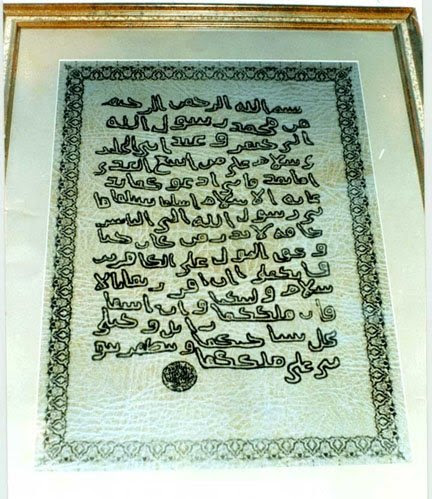 بسم الله الرحمن الرحيم
من محمد رسول الله
الى جيفر وعبد ابنى الجلند
ى سلام على من اتبع الهدى
اما بعد فانى ادعوكما بد
عاية الاسلام اسلما تسلما فا
نى رسول الله الى الناس
كافة لانذر من كان حيا
و يحق القول على الكافرين
وانكما ان اقررتما بالا
سلام وليتكما وان ابيتما
فان ملككما زايل وخيلى
تحل بساحتكما وتظهر نبو
تى على ملككما